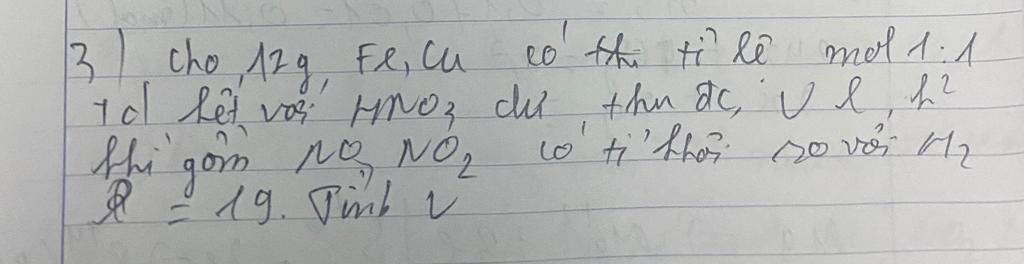 3) Cho 12g Fe, Cu có tỉ lệ mol 1:1
+d hết với HNO3 dư thu đc, V l, h²
khí gồm NO, NO2 có tỉ khối so với H2
= 19. Tính V